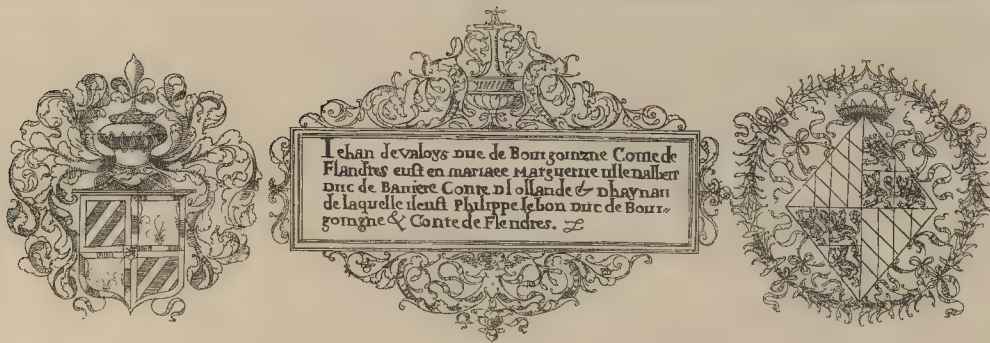 Iehan devaloys duc de Bourgoingne Conte de
Flandres eust en mariaee Marguerite fille dalbert
duc de Baviere Conte dhollande & dhaynau
de laquelle ileust Philippe lebon duc de Bour„
goingne & Conte de Flendres.